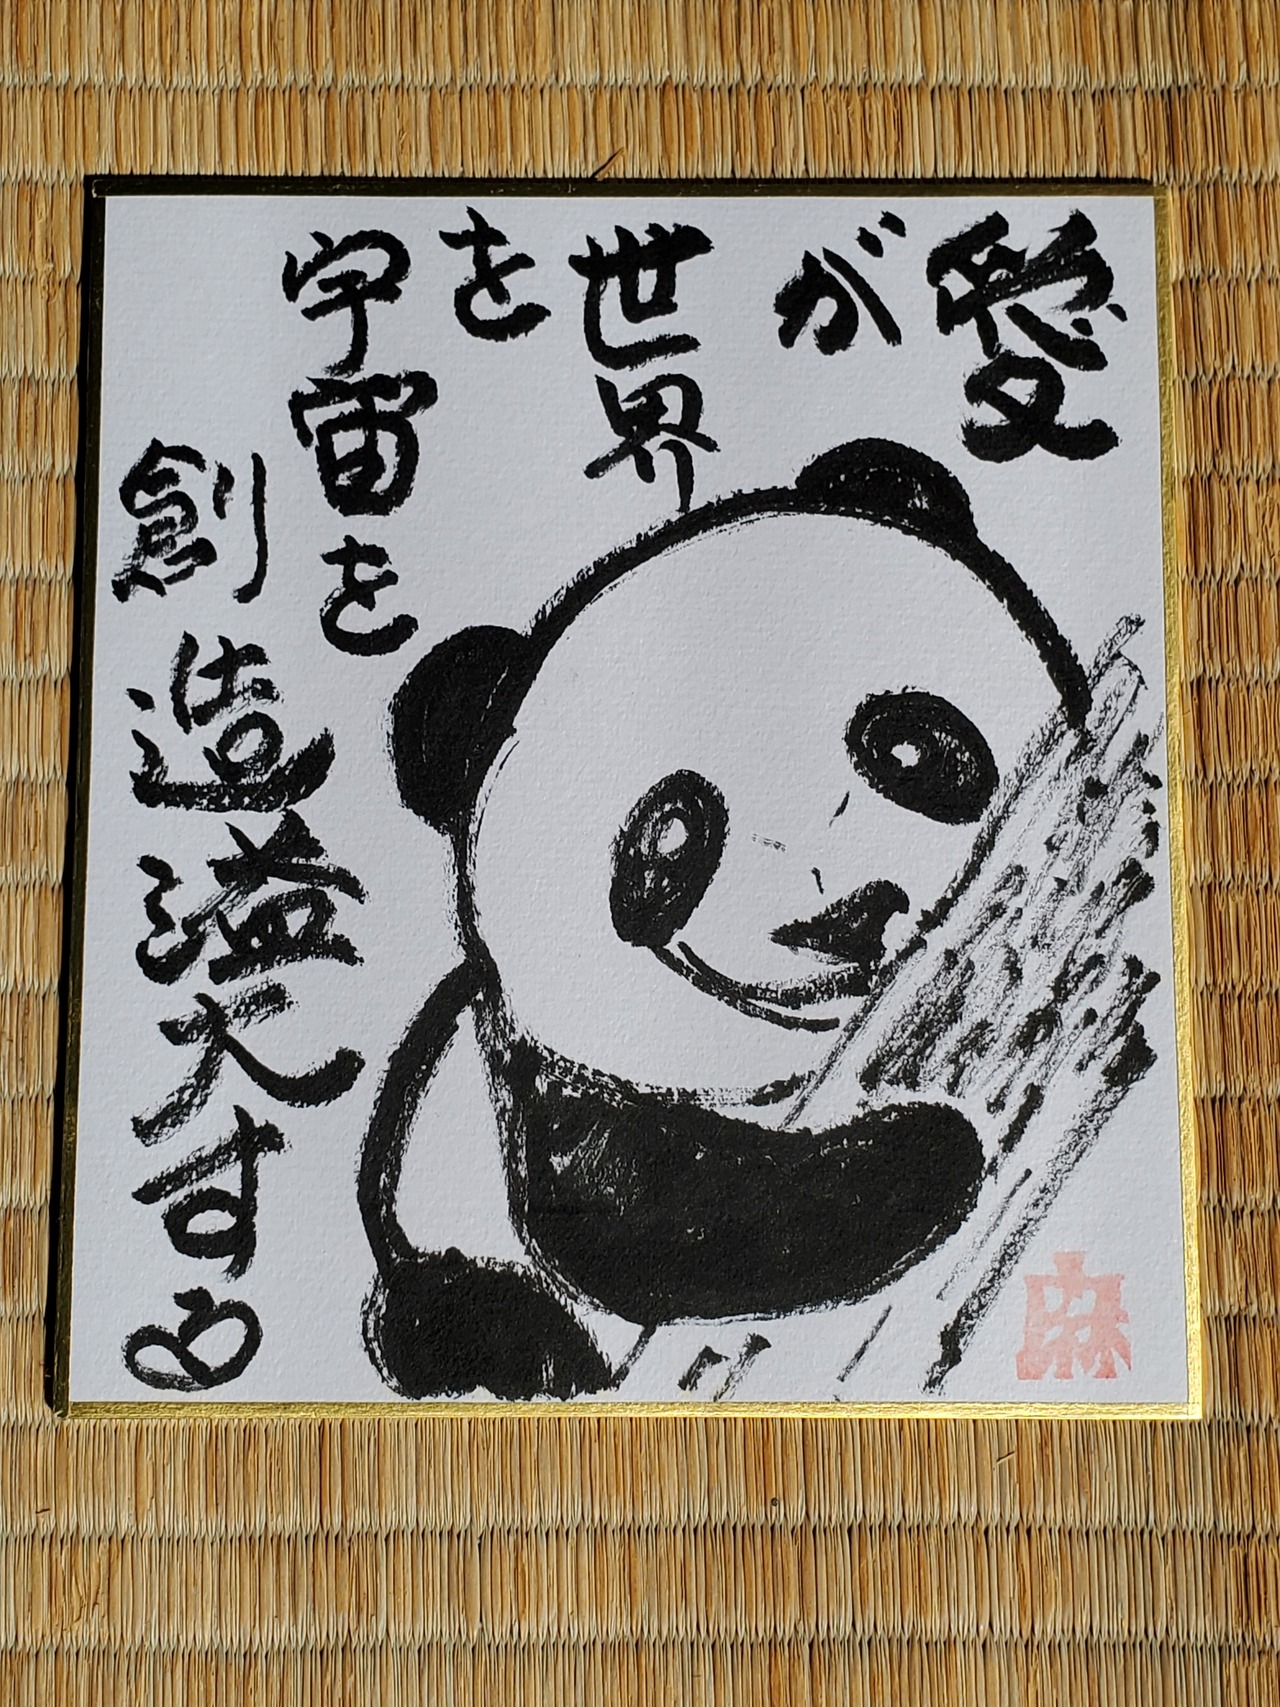 愛
が
世界
を
宇宙を
創造溢大する
麻